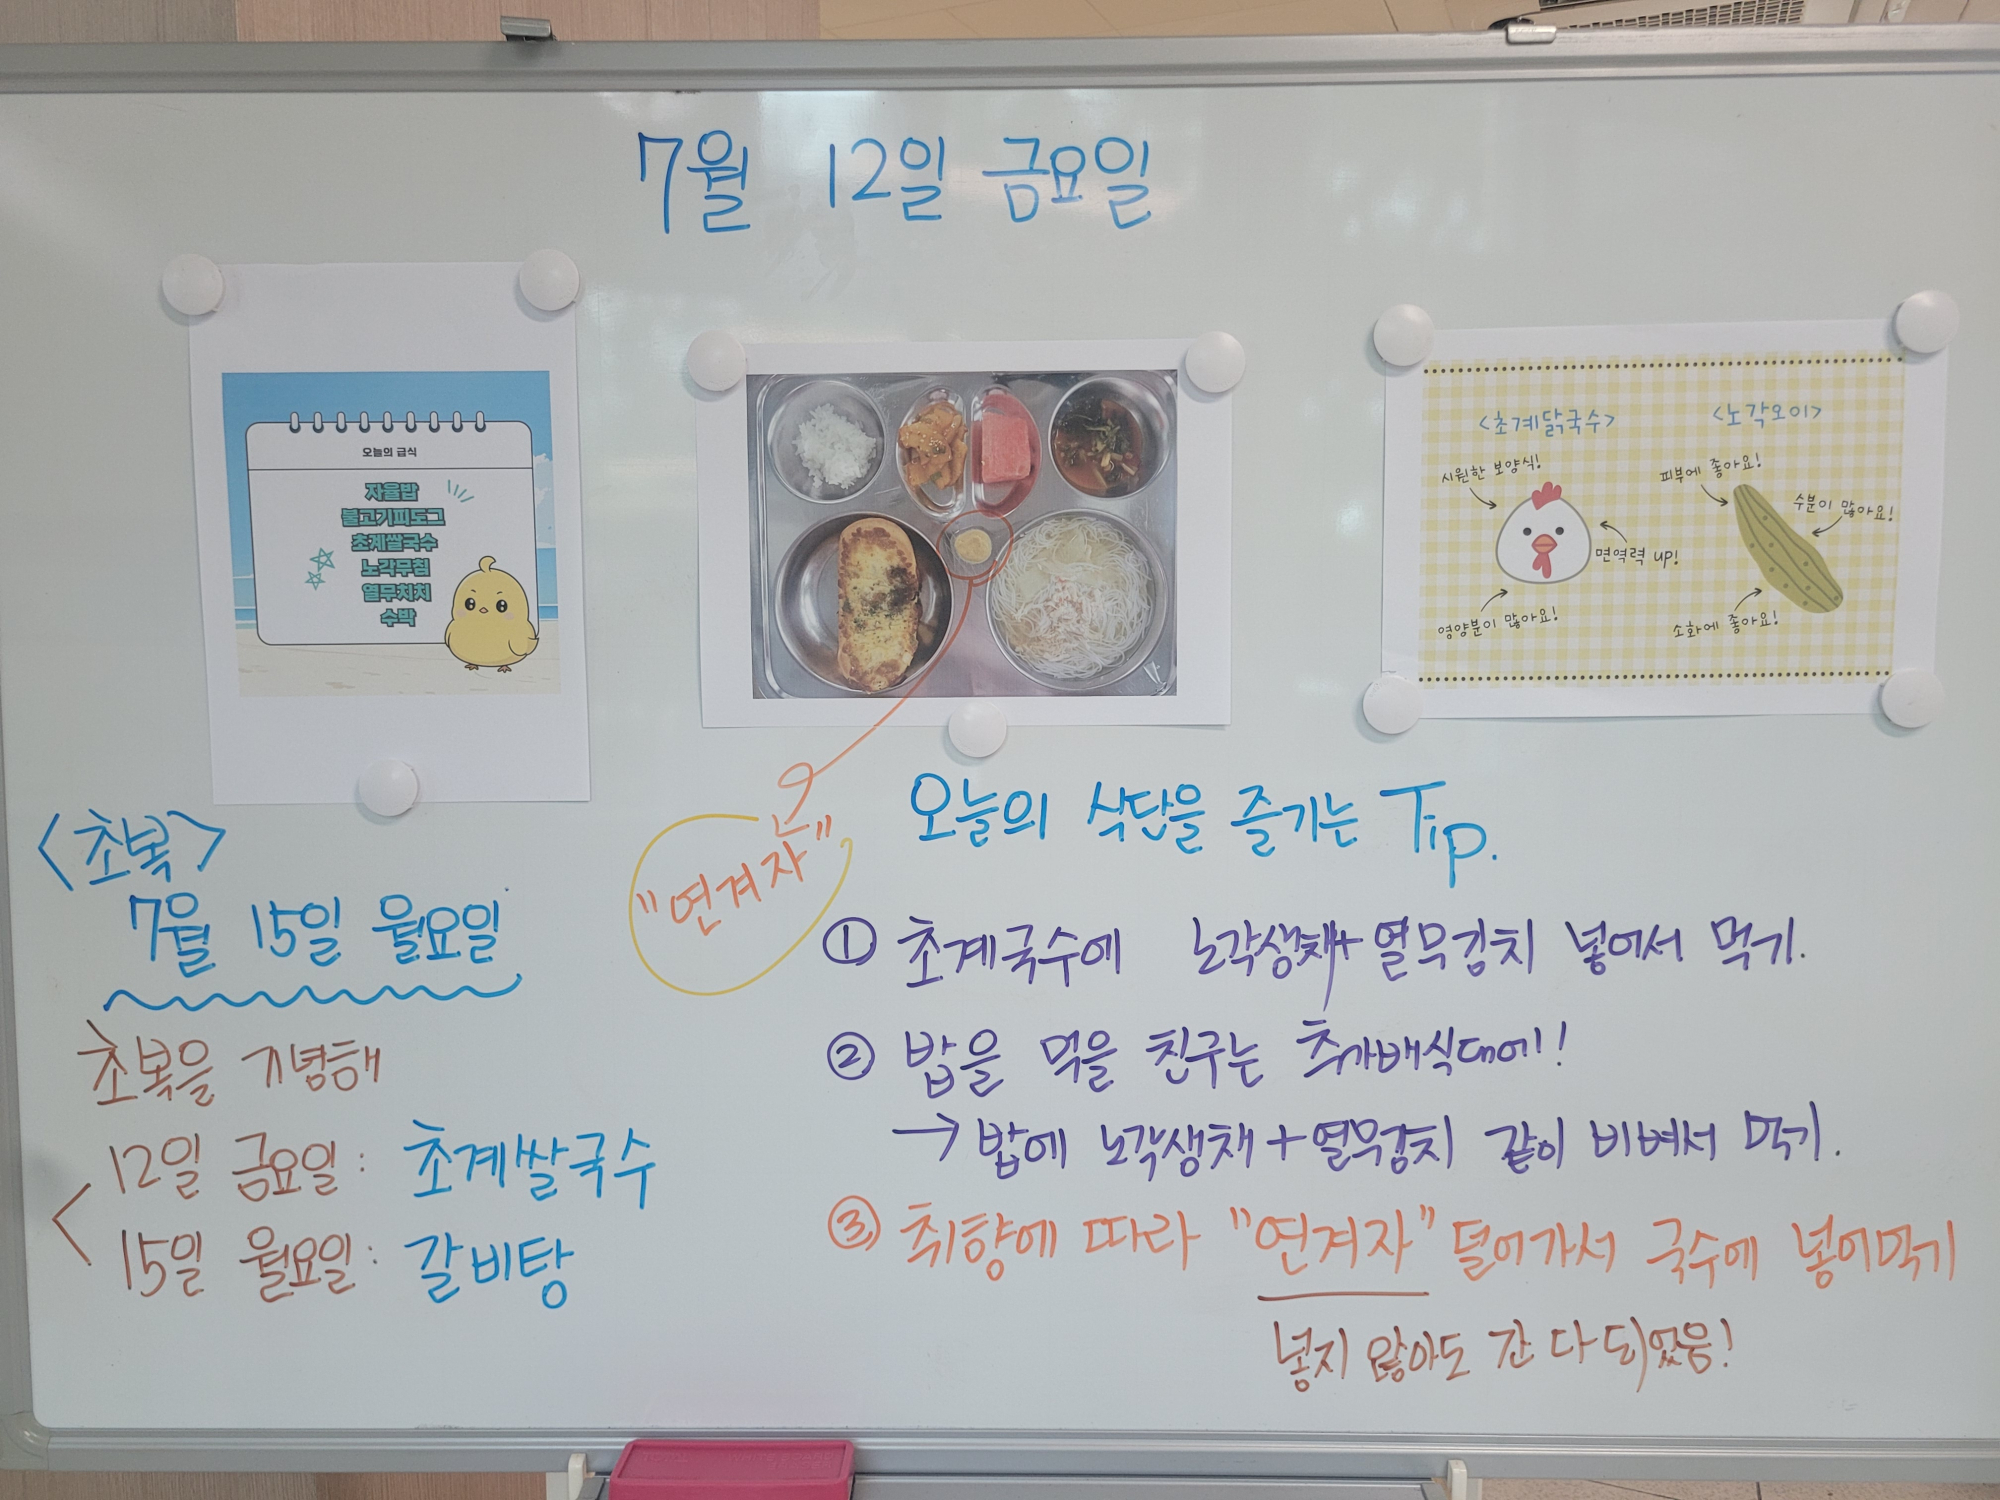 7월 12일 금요일
오늘의 급식
자율밥
불고기피도그
초계쌀국수
노각무침
열무치치
수박
<초계닭국수>
<노각오이>
시원한 보양식!
면역력 up!
영양분이 많아요!
피부에 좋아요!
수분이 많아요!
소화에 좋아요!
<초복>
7월 15일 월요일
초복을 기념해
12일 금요일: 초계쌀국수
15일 월요일: 갈비탕
"연겨자"
오늘의 식단을 즐기는 Tip.
① 초계국수에 노각생채+열무김치 넣어서 먹기.
② 밥을 먹을 친구는 추가배식대에!!
→밥에 노각생채+열무김치 같이 비벼서 먹기.
③ 취향에 따라 "연겨자" 덜어가서 국수에 넣어먹기
넣지 않아도 간 다 되었음!